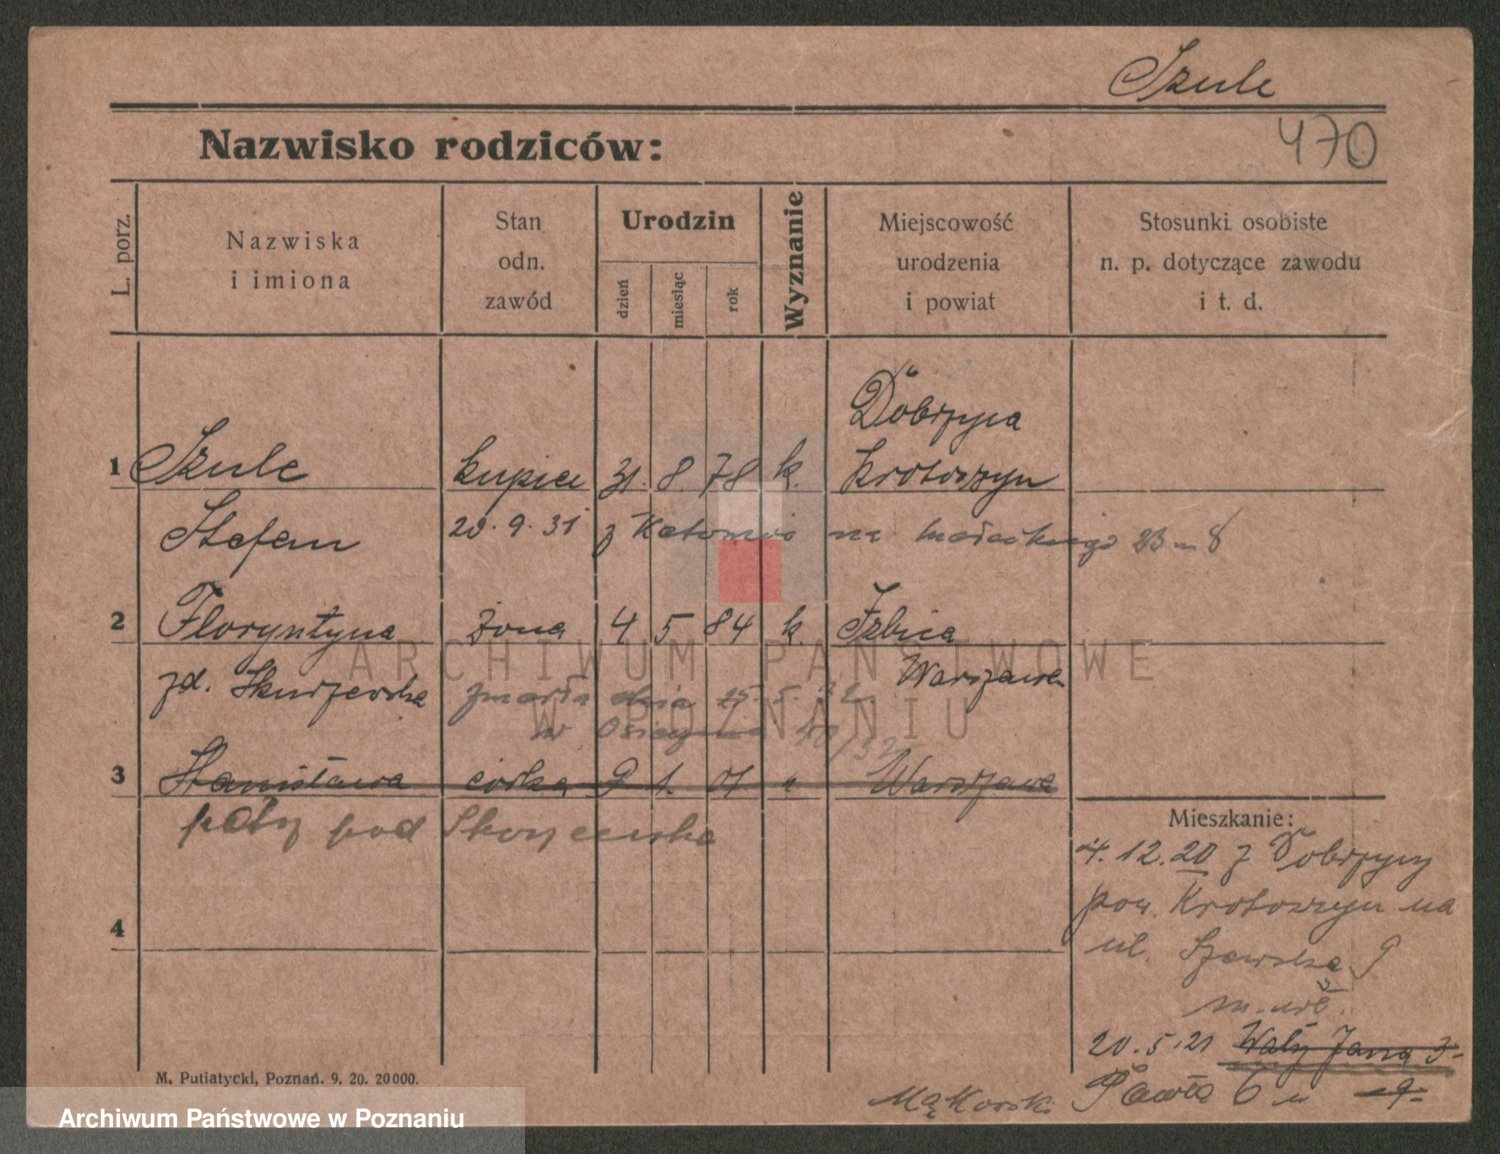 Szulc
470
Nazwisko rodziców:
L. porz.
Nazwiska
i imiona
Stan
odn.
zawód
Urodzin
dzień
miesiąc
rok
Wyznanie
Miejscowość
urodzenia
i powiat
Stosunki osobiste
n. p. dotyczące zawodu
i t. d.
Dobrzyca
1 Szulc kupiec 31. 8. 78 k. Krotoszyn
Stefan 20.9.31 z Katowic na 23 m 8
2 Floryntyna żona 4 5 84 k. Izbica
zd. Skurzewska zmarła dnia 25.5.32 Warszawa
w 40/32
3 Stanisława córka 9 1. 01 " Warszawa
patrz pod Skorzewska
Mieszkanie:
4.12.20 z Dobrzycy
pow. Krotoszyn na
ul. Szewska 9
20.5.21 Wały Jana 3
4
Mąkorski Pawła 6 9
M. Putiatycki, Poznań. 9. 20. 20000.
ARCHIWUM PAŃSTWOWE
W POZNANIU
Archiwum Państwowe w Poznaniu